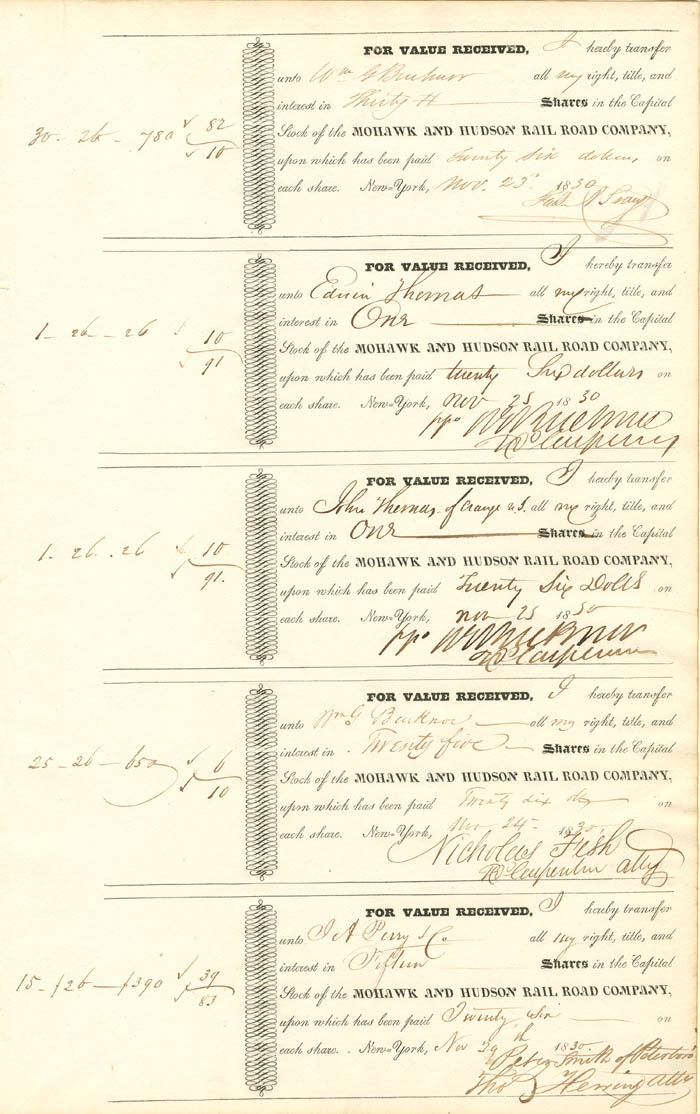 FOR VALUE RECEIVED, I hereby transfer
unto Wm G Bucknor all my right, title, and
interest in Thirty Shares in the Capital
30 - 26 - 780 82
10
Stock of the MOHAWK AND HUDSON RAIL ROAD COMPANY,
upon which has been paid twenty six dollars, on
each share. New-York, Nov. 23d 1830
FOR VALUE RECEIVED, I hereby transfer
unto Edwin Thomas all my right, title, and
interest in One Shares in the Capital
1 - 26 - 26 10
91
Stock of the MOHAWK AND HUDSON RAIL ROAD COMPANY,
upon which has been paid twenty Six dollars on
each share. New-York, Nov 25 1830
ppo WG Bucknor
W Carpenter
FOR VALUE RECEIVED, I hereby transfer
unto John Thomas of Orange all my right, title, and
interest in One Shares in the Capital
1 - 26 . 26 10
91.
Stock of the MOHAWK AND HUDSON RAIL ROAD COMPANY,
upon which has been paid Twenty Six Dolls on
each share. New-York, Nov 25 1830
ppo WG Bucknor
W Carpenter
FOR VALUE RECEIVED, I hereby transfer
unto Wm G Bucknor all my right, title, and
interest in Twenty five Shares in the Capital
25 - 26 - 650 6
10
Stock of the MOHAWK AND HUDSON RAIL ROAD COMPANY,
upon which has been paid Twenty six do on
each share. New-York, Nov 24 1830.
Nicholas Fish
W Carpenter atty
FOR VALUE RECEIVED, I hereby transfer
unto J A Perry & Co all my right, title, and
interest in Fifteen Shares in the Capital
15 - $26 - $390 39
83
Stock of the MOHAWK AND HUDSON RAIL ROAD COMPANY,
upon which has been paid Twenty Six on
each share. New-York, Nov 29th 1830.
Peter Smith of Peterboro
Tho Herring Atty